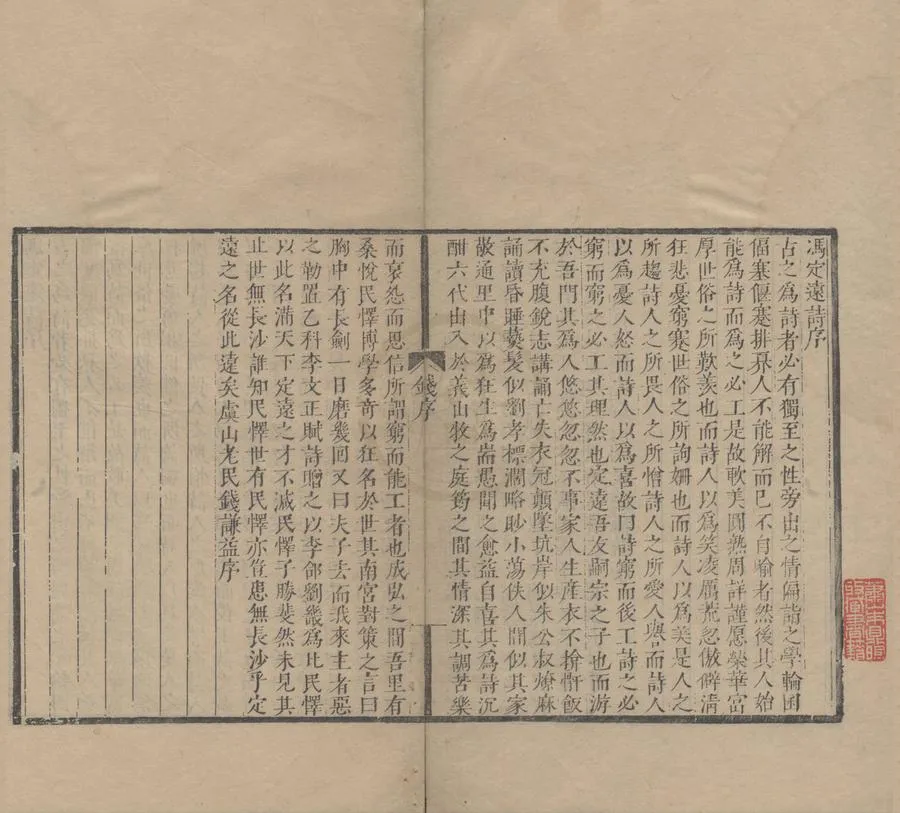 馮定遠詩序
古之爲詩者必有獨至之性旁出之情偏詣之學輪囷
偪塞偃蹇排奡人不能解而巳不自喻者然後其人始
能爲詩而爲之必工是故軟美圓熟周詳謹愿榮華富
厚世俗之所歎羡也而詩人以爲笑凌厲荒忽傲僻淸
狂悲憂窮蹇世俗之所詢姍也而詩人以爲美是人之
所趨詩人之所畏人之所憎詩人之所愛人譽而詩人
以爲憂人怒而詩人以爲喜故曰詩窮而後工詩之必
窮而窮之必工其理然也定遠吾友嗣宗之子也而游
於吾門其爲人悠悠忽忽不事家人生產衣不揜骭飯
不充腹銳志講誦亡失衣冠顛墜坑岸似朱公叔燎麻
誦讀昏睡爇髮似劉孝標濶略眇小蕩佚人閒似其家
敬通里中以爲狂生爲耑愚聞之愈益自喜其爲詩沉
酣六代出入於義山牧之庭筠之間其情深其調苦樂
錢序
而哀怨而思信所謂窮而能工者也成弘之間吾里有
桑悅民懌博學多奇以狂名於世其南宮對策之言曰
胸中有長劍一日磨幾回又曰夫子去而我來主者惡
之勒置乙科李文正賦詩贈之以李郃劉蕡爲比民懌
以此名滿天下定遠之才不減民懌子勝斐然未見其
止世無長沙誰知民懌世有民懌亦豈患無長沙乎定
遠之名從此遠矣虞山老民錢謙益序